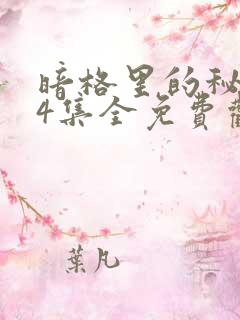 暗格里的秘
4集全免费
葉凡